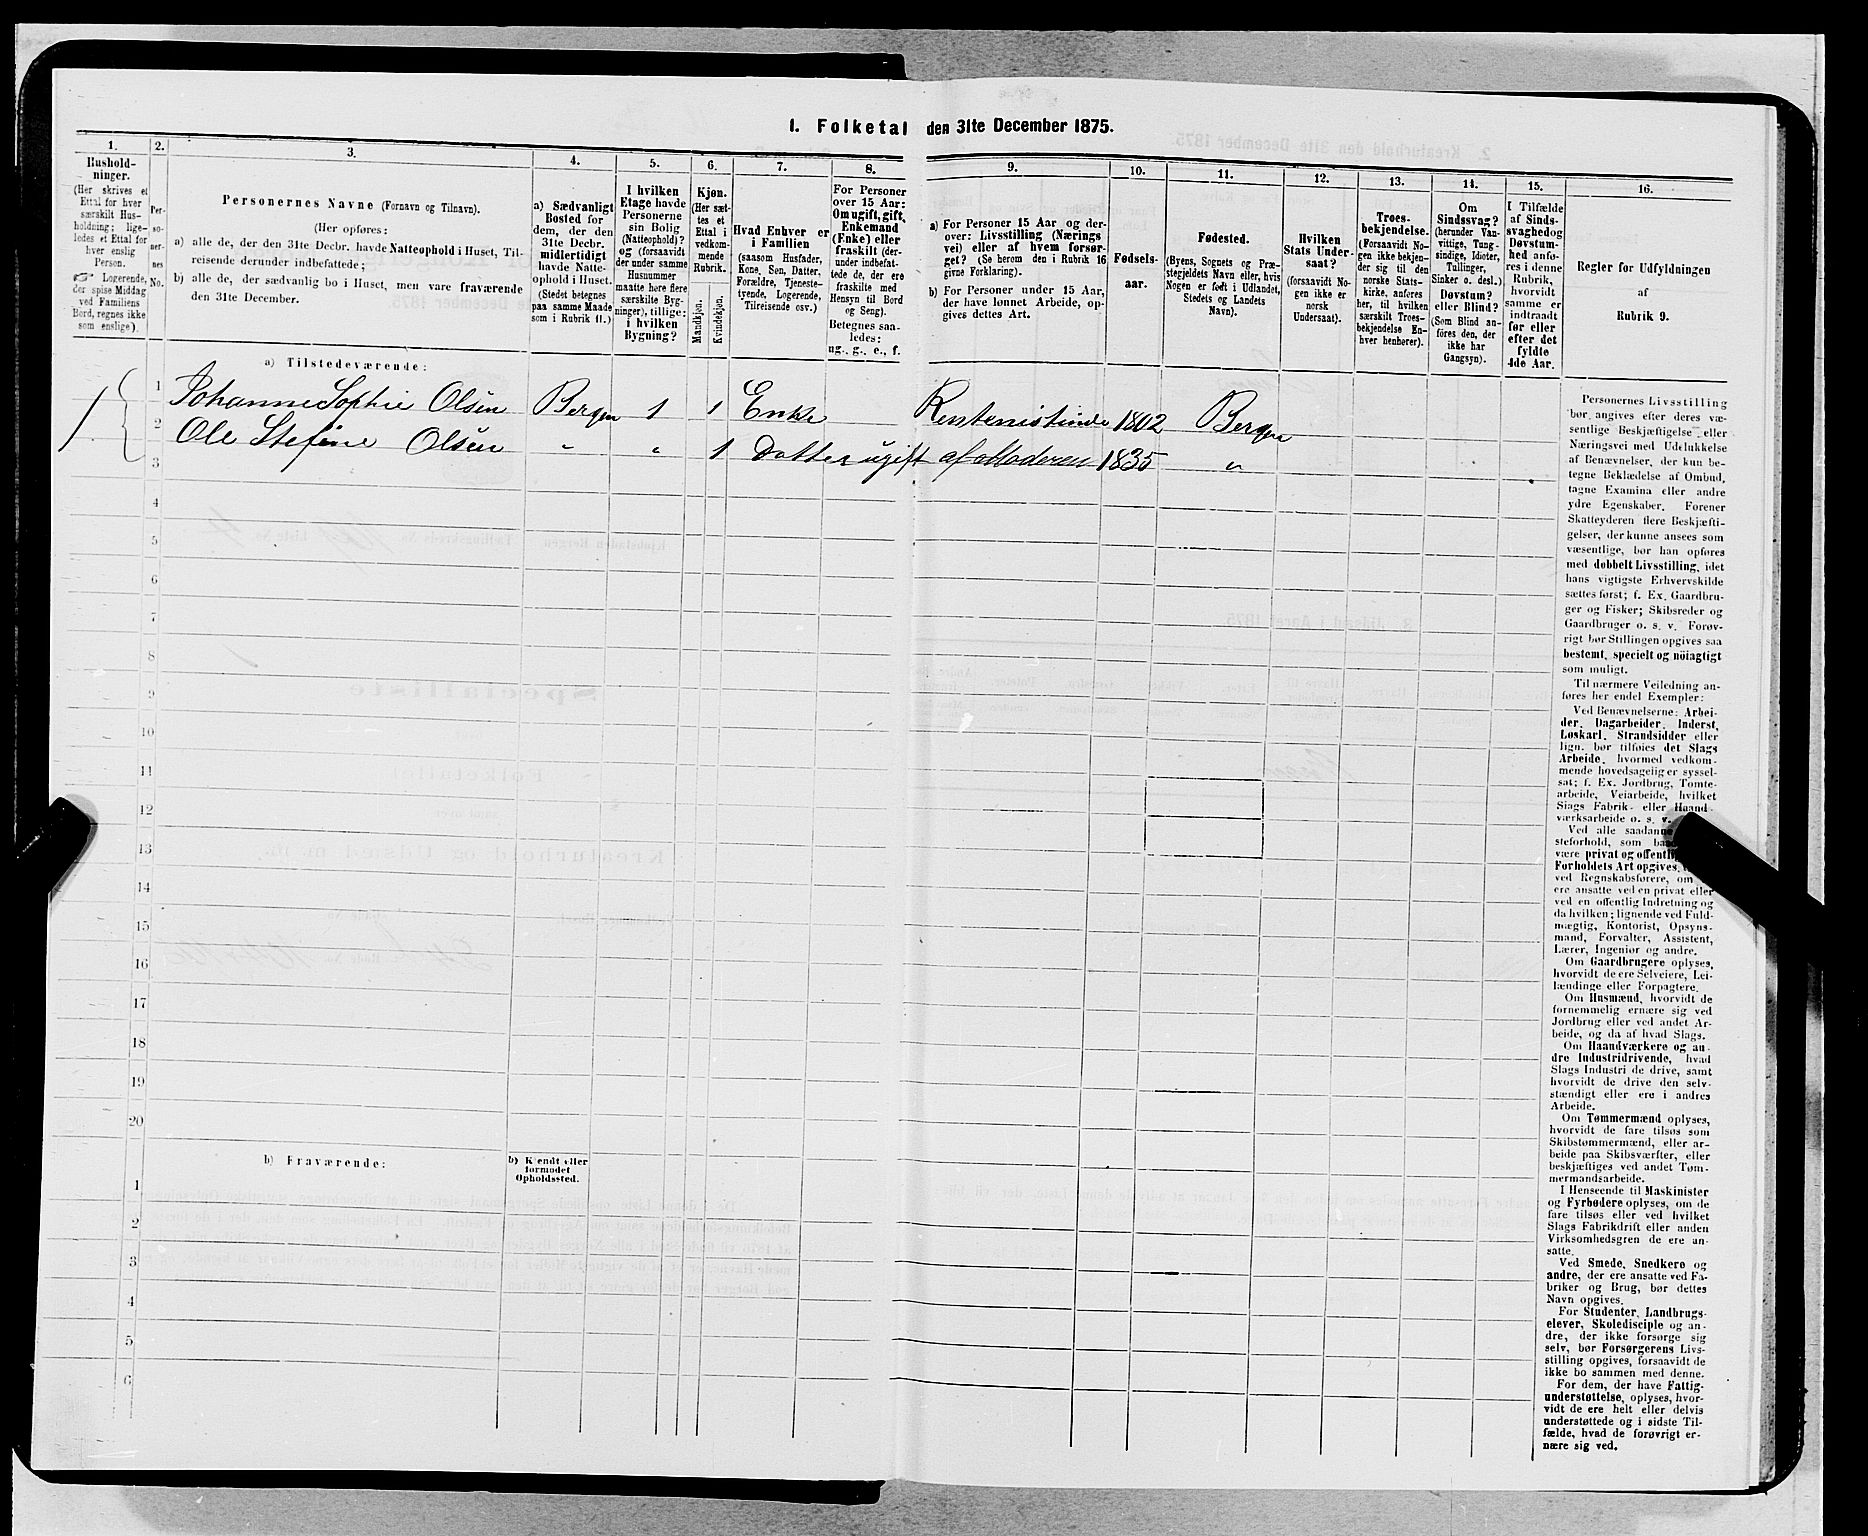 1. Folketal den 31te December 1875.
1.
Hushold-
ninger.
(Her skrives et
Ettal for hver
særskilt Hus-
holdning; lige-
ledes et Ettal for
hver enslig
Person.
☞ Logerende,
der spise Middag
ved Familiens
Bord, regnes ikke
som enslige).
2.
Per-
so-
ner-
nes
No.
3.
Personernes Navne (Fornavn og Tilnavn).
(Her opføres:
a) alle de, der den 31te Decbr. havde Natteophold i Huset, Til-
reisende derunder indbefattede;
b) alle de, der sædvanlig bo i Huset, men vare fraværende
den 31te December.
4.
a) Sædvanligt
Bosted for
dem, der den
31te Decbr.
midlertidigt
havde Natte-
ophold i Huset.
(Stedet betegnes
paa samme Maade
som i Rubrik 11.)
5.
I hvilken
Etage havde
Personerne
sin Bolig
(Natteophold)?
og (forsaavidt
der under samme
Husnummer
maatte høre flere
særskilte Byg-
ninger), tillige:
i hvilken
Bygning?
6.
Kjøn.
(Her sæt-
tes et
Ettal i
vedkom-
mende
Rubrik.
Mandkjøn.
Kvindekjøn.
7.
Hvad Enhver er
i Familien
(saasom Husfader,
Kone, Søn, Datter,
Forældre, Tjeneste-
tyende, Logerende,
Tilreisende osv.)
8.
For Personer
over 15 Aar:
Om ugift, gift,
Enkemand
(Enke) eller
fraskilt (der-
under indbefat-
tede de, der ere
fraskilte med
Hensyn til Bord
og Seng).
Betegnes saa-
ledes:
ug., g., e., f.
9.
a) For Personer 15 Aar og der-
over: Livsstilling (Nærings
vei) eller af hvem forsør-
get? (Se herom den i Rubrik 16
givne Forklaring).
b) For Personer under 15 Aar,
der have lønnet Arbeide, op-
gives dettes Art.
10.
Fødsels-
aar.
11.
Fødested.
(Byens, Sognets og Præ-
stegjeldets Navn eller, hvis
Nogen er født i Udlandet,
Stedets og Landets
Navn).
12.
Hvilken
Stats Under-
saat?
(forsaavidt
Nogen ikke er
norsk
Undersaat).
13.
Troes-
bekjendelse.
(Forsaavidt No-
gen ikke bekjen-
der sig til den
norske Stats-
kirke, anføres
her, til hvilken
særskilt Troes-
bekjendelse En-
hver henhører).
14.
Om
Sindssvag?
(herunder Van-
vittige, Tung-
sindige, Idioter,
Tullinger,
Sinker o. desl.)
Døvstum?
eller Blind?
(Som Blind an-
føres den, der
ikke har
Gangsyn).
15.
I Tilfælde
af Sinds-
svaghed og
Døvstum-
hed anfø-
res i denne
Rubrik,
hvorvidt
samme er
indtraadt
før eller
efter det
fyldte
4de Aar.
16.
Regler for Udfyldningen
af
Rubrik 9.
a) Tilstedeværende:
1 1 Johanne Sophie Olsen Bergen 1 1 Enke Rentenistinde 1802 Bergen
2 Ole Stefine Olsen " " 1 Datter ugift af Moderen 1835 "
3
4
5
6
7
8
9
10
11
12
13
14
15
16
17
18
19
20
b) Fraværende:
b) Kjendt eller
formodet
Opholdssted.
1
2
3
4
5
6
Personernes Livsstilling
bør angives efter deres væ-
sentlige Beskjæftigelse eller
Næringsvei med Udelukkelse
af Benævnelser, der kun be-
tegne Beklædelse af Ombud,
tagne Examina eller andre
ydre Egenskaber. Forener
Skatteyderen flere Beskjæfti-
gelser, der kunne ansees som
væsentlige, bør han opføres
med dobbelt Livsstilling, idet
hans vigtigste Erhvervskilde
sættes først; f. Ex. Gaardbru-
ger og Fisker; Skibsreder og
Gaardbruger o. s. v. Forøv-
rigt bør Stillingen opgives saa
bestemt, specielt og nöiagtigt
som muligt.
Til nærmere Veiledning an-
føres her endel Exempler:
Ved Benævnelserne: Arbei-
der, Dagarbeider, Inderst,
Løskarl, Strandsidder eller
lign. bør tilføies det Slags
Arbeide, hvormed vedkom-
mende hovedsagelig er syssel-
sat; f. Ex. Jordbrug, Tomte-
arbeide, Veiarbeide, hvilket
Slags Fabrik- eller Haand-
værksarbeide o. s. v.
Ved alle saadanne
steforhold, som
være privat og offentlig
Forholdets Art opgives,
ved Regnskabsførere, om
ere ansatte ved en privat eller
ved en offentlig Indretning og
da hvilken; lignende ved Fuld-
mægtig, Kontorist, Opsyns-
mand, Forvalter, Assistent,
Lærer, Ingeniør og andre.
Om Gaardbrugere oplyses,
hvorvidt de ere Selveiere, Lei-
lændinge eller Forpagtere.
Om Husmænd, hvorvidt de
fornemmelig ernære sig ved
Jordbrug eller ved andet Ar-
beide, og da af hvad Slags.
Om Haandværkere og an-
dre Industridrivende, hvad
Slags Industri de drive, samt
hvorvidt de drive den selv-
stændigt eller ere i andres
Arbeide.
Om Tømmermænd oplyses,
hvorvidt de fare tilsøs som
Skibstømmermænd, eller ar-
beide paa Skibsværfter, eller
beskjæftiges ved andet Tøm-
mermandsarbeide.
I Henseende til Maskinister
og Fyrbødere oplyses, om de
fare tilsøs eller ved hvilket
Slags Fabrikdrift eller anden
Virksomhedsgren de ere an-
satte.
Ved Smede, Snedkere og
andre, der ere ansatte ved Fa-
briker og Brug, bør dettes
Navn opgives.
For Studenter, Landbrugs-
elever, Skoledisciple og an-
dre, der ikke forsørge sig
selv, bør Forsørgerens Livs-
stilling opgives, forsaavidt de
ikke bo sammen med denne.
For dem, der have Fattig-
understøttelse, oplyses, hvor-
vidt de ere helt eller delvis
understøttede og i sidste Til-
fælde, hvad de forøvrigt er-
nære sig ved.